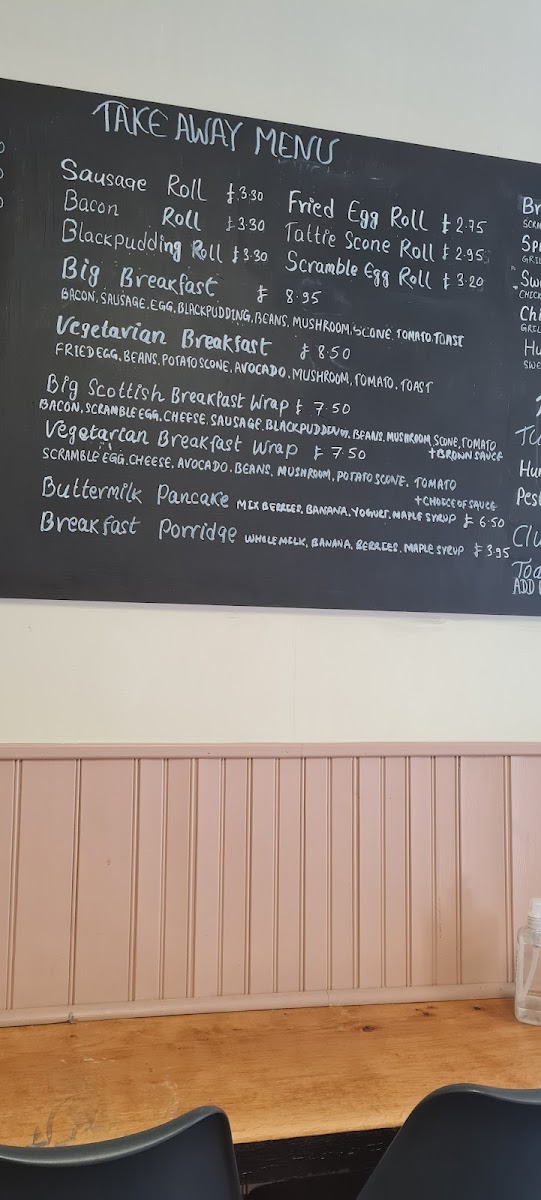 TAKE AWAY MENU
Sausage Roll £3.30
Bacon Roll £3.30
Blackpudding Roll £3.30
Fried Egg Roll £2.75
Tattie Scone Roll £2.95
Scramble Egg Roll £3.20
Big Breakfast £8.95
BACON, SAUSAGE, EGG, BLACKPUDDING, BEANS, MUSHROOM, SCONE, TOMATO, TOAST
Vegetarian Breakfast £8.50
FRIED EGG, BEANS, POTATO SCONE, AVOCADO, MUSHROOM, TOMATO, TOAST
Big Scottish Breakfast Wrap £7.50
BACON, SCRAMBLE EGG, CHEESE, SAUSAGE, BLACKPUDDING, BEANS, MUSHROOM, SCONE, TOMATO
+ BROWN SAUCE
Vegetarian Breakfast Wrap £7.50
SCRAMBLE EGG, CHEESE, AVOCADO, BEANS, MUSHROOM, POTATO SCONE, TOMATO
+ CHOICE OF SAUCE
Buttermilk Pancake MIX BERRIES, BANANA, YOGURT, MAPLE SYRUP £6.50
Breakfast Porridge WHOLE MILK, BANANA, BERRIES, MAPLE SYRUP £3.95
ADD